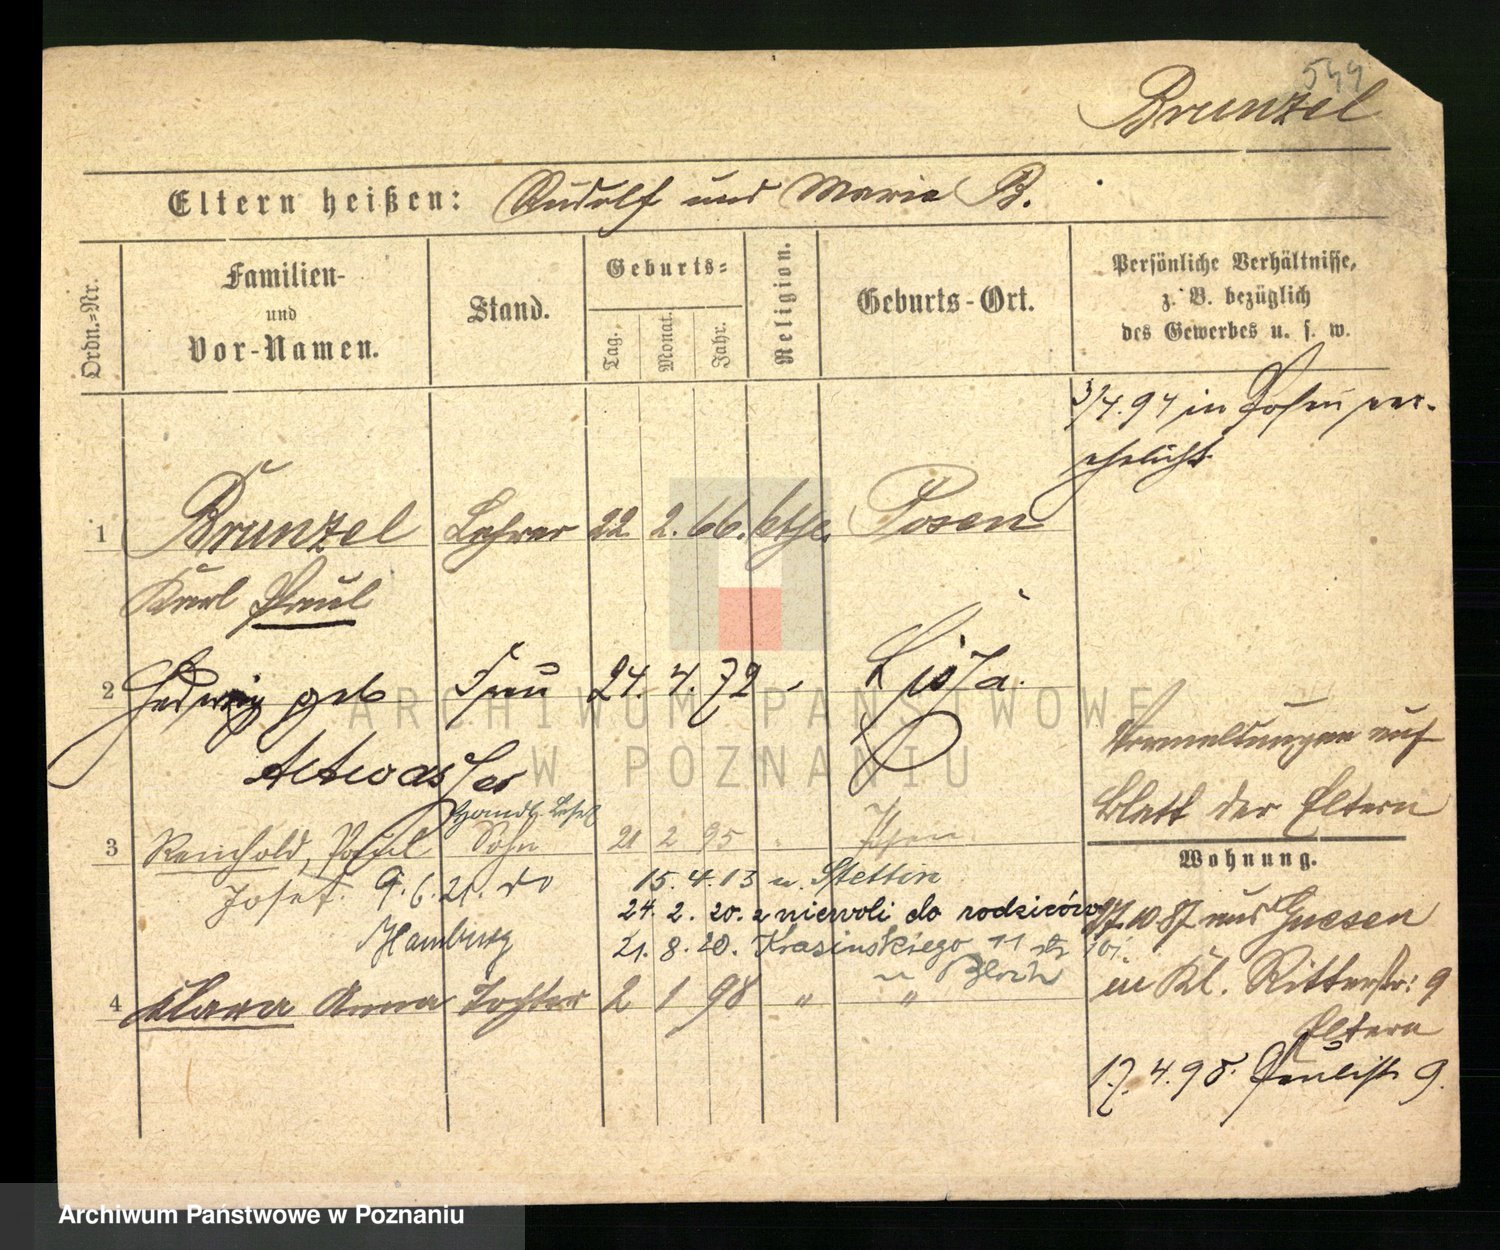 544
Brunzel
Eltern heißen: Rudolf und Maria B.
Ordn.-Nr.
Familien- und Vor-Namen.
Stand.
Geburts-
Tag.
Monat.
Jahr.
Religion.
Geburts-Ort.
Persönliche Verhältnisse,
z. B. bezüglich
des Gewerbes u. s. w.
3/4.94 in Posen ver-
ehelicht
1 Brunzel Lehrer 22. 2. 66. kth. Posen
Karl Paul
2 Hedwig geb Frau 24. 4. 72 Lissa.
Altwasser
Anmeldungen auf
Blatt der Eltern
3 Reinhold, Paul Sohn 21 2 95 Posen
Josef. 9.6.21. do
Hamburg
15.4.13 n. Stettin
24. 2. 20. z niewoli do rodziców
21. 8. 20. Krasinskiego 11
u Bloch
Wohnung.
10.87 aus Gnesen
in Kl. Ritterstr: 9
Eltern
17.4.98. Paulistr 9.
4 Klara Anna Tochter 2 1 98 " "
ARCHIWUM PAŃSTWOWE
W POZNANIU
Archiwum Państwowe w Poznaniu